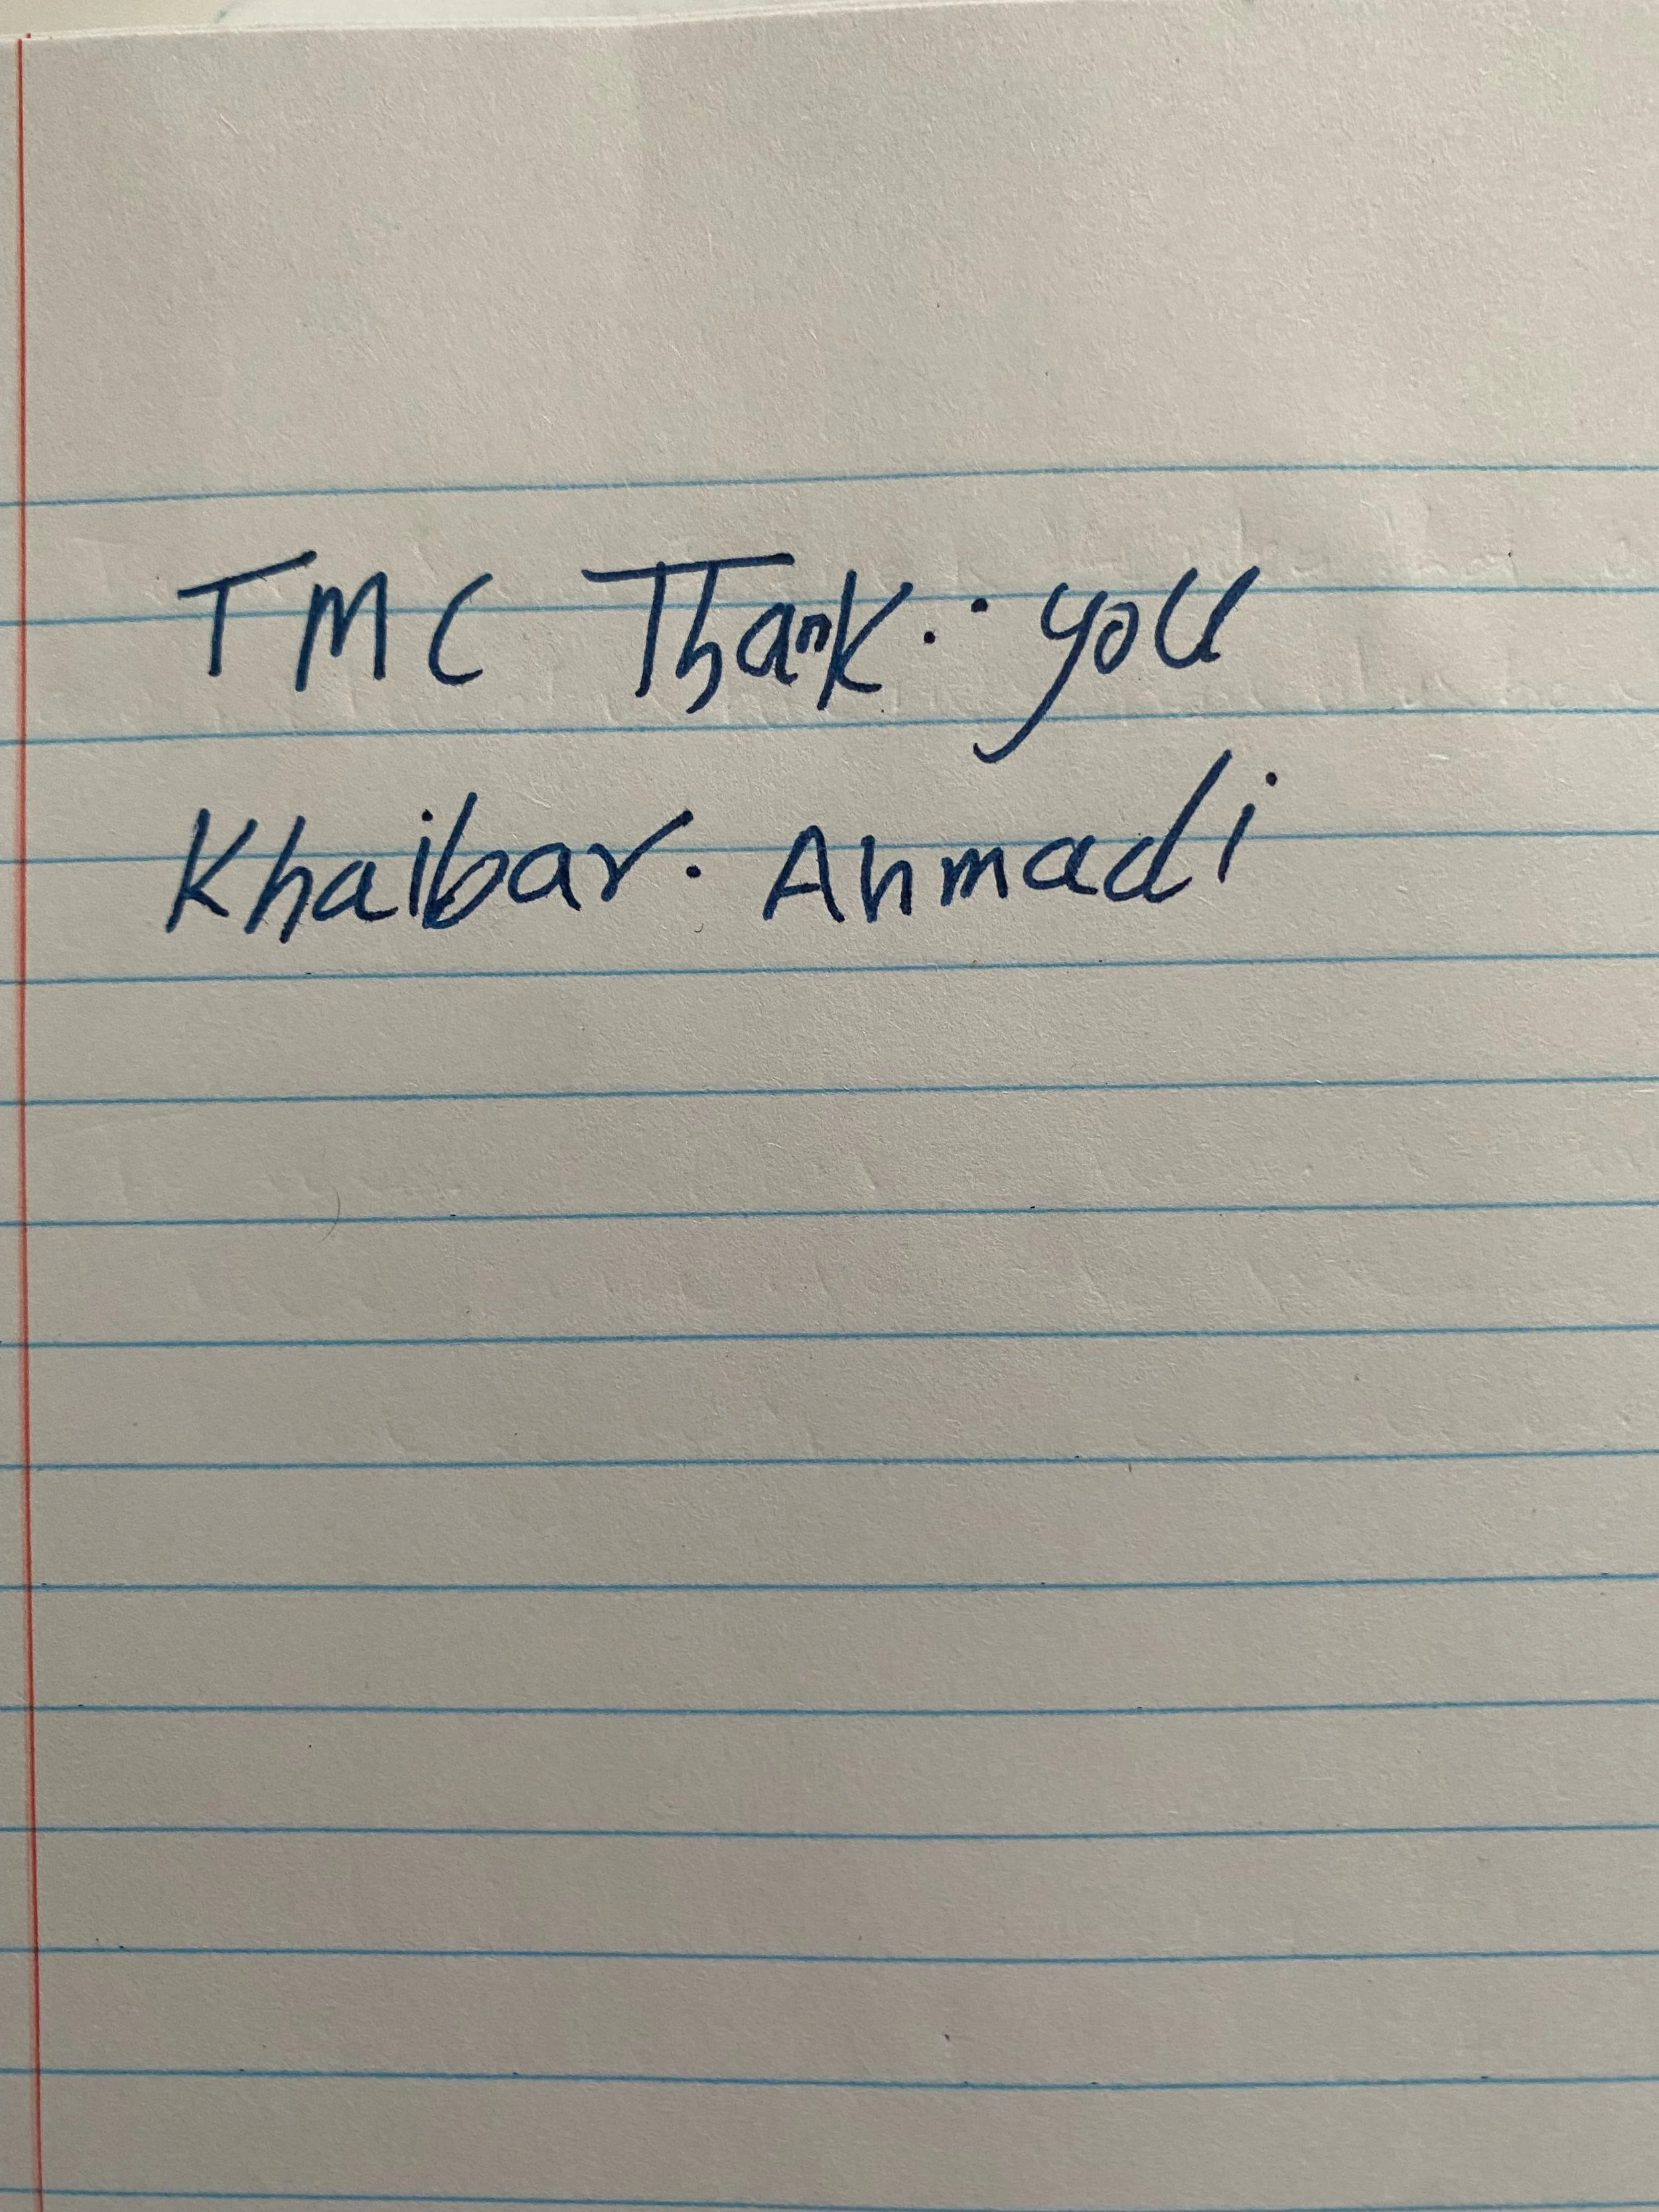 TMC Thank.. you
Khaibar. Ahmadi